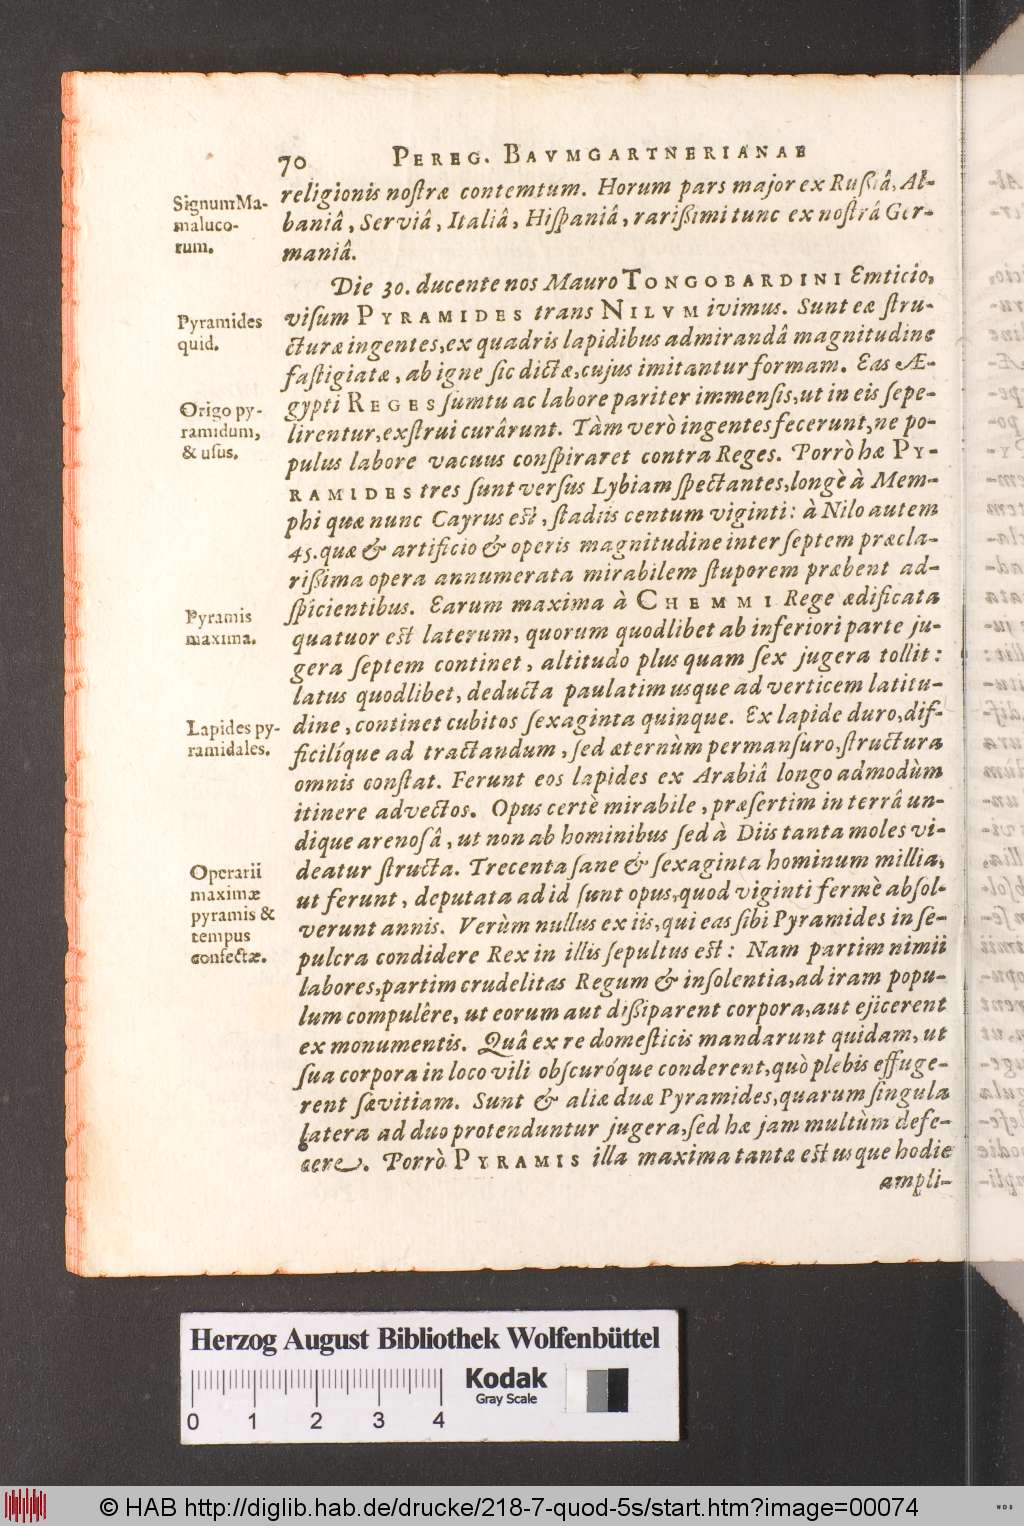 70 PEREG. BAVMGARTNERIANAE
religionis nostræ contemtum. Horum pars major ex Rußiâ, Al-
baniâ, Serviâ, Italiâ, Hispaniâ, rarißimi tunc ex nostrâ Ger-
maniâ.
Signum Ma-
maluco-
rum.
Die 30. ducente nos Mauro TONGOBARDINI Emticio,
visum PYRAMIDES trans NILVM ivimus. Sunt eæ stru-
cturæ ingentes, ex quadris lapidibus admirandâ magnitudine
fastigiatæ, ab igne sic dictæ, cujus imitantur formam. Eas Æ-
gypti REGES sumtu ac labore pariter immensis, ut in eis sepe-
lirentur, exstrui curârunt. Tàm verò ingentes fecerunt, ne po-
pulus labore vacuus conspiraret contra Reges. Porrò hæ PY-
RAMIDES tres sunt versus Lybiam spectantes, longè à Mem-
phi quæ nunc Cayrus est, stadiis centum viginti: à Nilo autem
45. quæ & artificio & operis magnitudine inter septem præcla-
rißima opera annumerata mirabilem stuporem præbent ad-
spicientibus. Earum maxima à CHEMMI Rege ædificata
quatuor est laterum, quorum quodlibet ab inferiori parte ju-
gera septem continet, altitudo plus quam sex jugera tollit:
latus quodlibet, deducta paulatim usque ad verticem latitu-
dine, continet cubitos sexaginta quinque. Ex lapide duro, dif-
ficilíque ad tractandum, sed æternùm permansuro, structura
omnis constat. Ferunt eos lapides ex Arabiâ longo admodùm
itinere advectos. Opus certè mirabile, præsertim in terrâ un-
dique arenosâ, ut non ab hominibus sed à Diis tanta moles vi-
deatur structa. Trecenta sane & sexaginta hominum millia,
ut ferunt, deputata ad id sunt opus, quod viginti fermè absol-
verunt annis. Verùm nullus ex iis, qui eas sibi Pyramides in se-
pulcra condidere Rex in illis sepultus est: Nam partim nimii
labores, partim crudelitas Regum & insolentia, ad iram popu-
lum compulêre, ut eorum aut dißiparent corpora, aut ejicerent
ex monumentis. Quâ ex re domesticis mandarunt quidam, ut
sua corpora in loco vili obscuróque conderent, quò plebis effuge-
rent sævitiam. Sunt & aliæ duæ Pyramides, quarum singula
latera ad duo protenduntur jugera, sed hæ jam multùm defe-
cere. Porrò PYRAMIS illa maxima tantæ est usque hodie
ampli-
Pyramides
quid.
Origo py-
ramidum,
& usus.
Pyramis
maxima.
Lapides py-
ramidales.
Operarii
maximæ
pyramis &
tempus
confectæ.
Herzog August Bibliothek Wolfenbüttel
Kodak
Gray Scale
0 1 2 3 4
© HAB http://diglib.hab.de/drucke/218-7-quod-5s/start.htm?image=00074